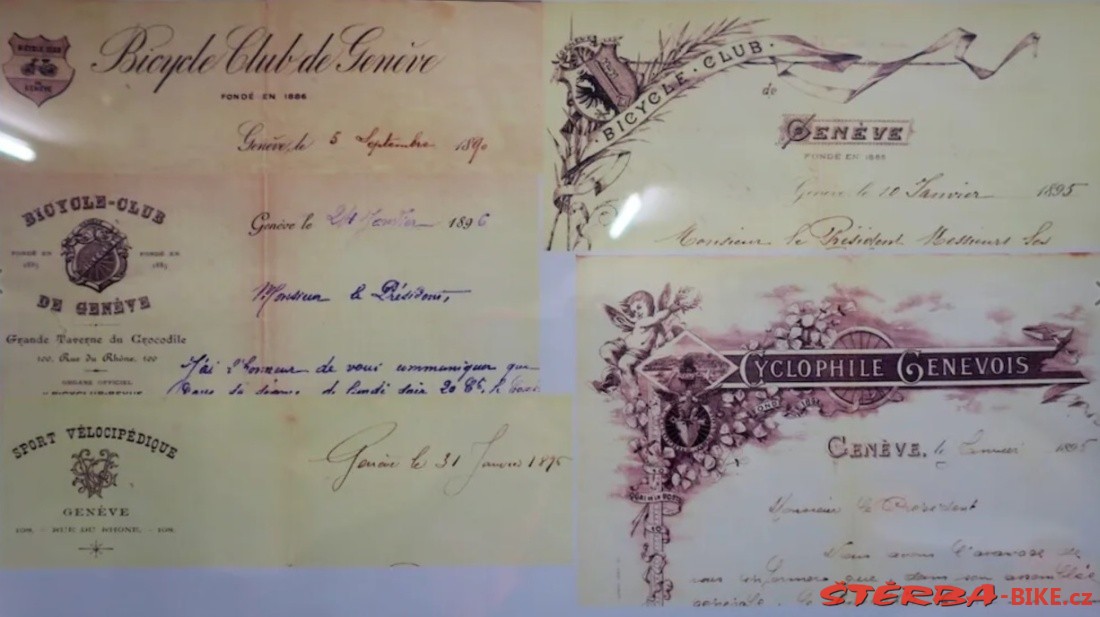 BICYCLE CLUB
DE
GENÈVE
Bicycle Club de Genève
FONDÉ EN 1886
Genève, le 5 Septembre 1890
BICYCLE-CLUB
FONDÉ EN
FONDÉ EN
DE GENÈVE
Grande Taverne du Crocodile
100, Rue du Rhône, 100
ORGANE OFFICIEL
Genève le 1896
Monsieur le Président,
J'ai l'honneur de vous communiquer que
dans sa séance de lundi soir 20 Ct.
SPORT VÉLOCIPÉDIQUE
GENÈVE
108, - RUE DU RHONE, - 108,
Genève le 31 Janvier 1895
BICYCLE · CLUB ·
de
GENÈVE
FONDÉ EN
Genève le 10 Janvier 1895
Monsieur le Président Messieurs les
CYCLOPHILE GENEVOIS
GENÈVE, le Janvier 1895
Monsieur le Président
Nous avons l'avantage de
vous informer que dans son assemblée
générale
ŠTĚRBA-BIKE.cz